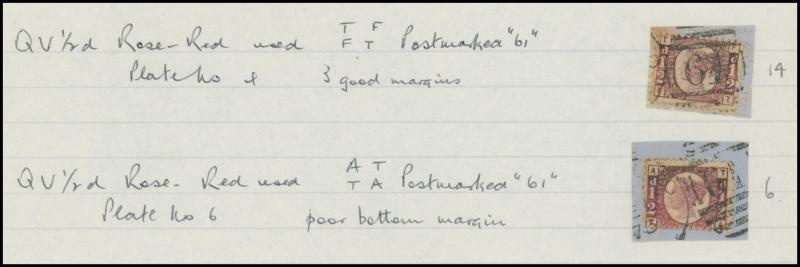 QV 1/2d Rose-Red used T F Postmarked "61"
F T
Plate No 3 good margins
14
QV 1/2d Rose-Red used A T Postmarked "61"
T A
Plate No 6 poor bottom margin
6.